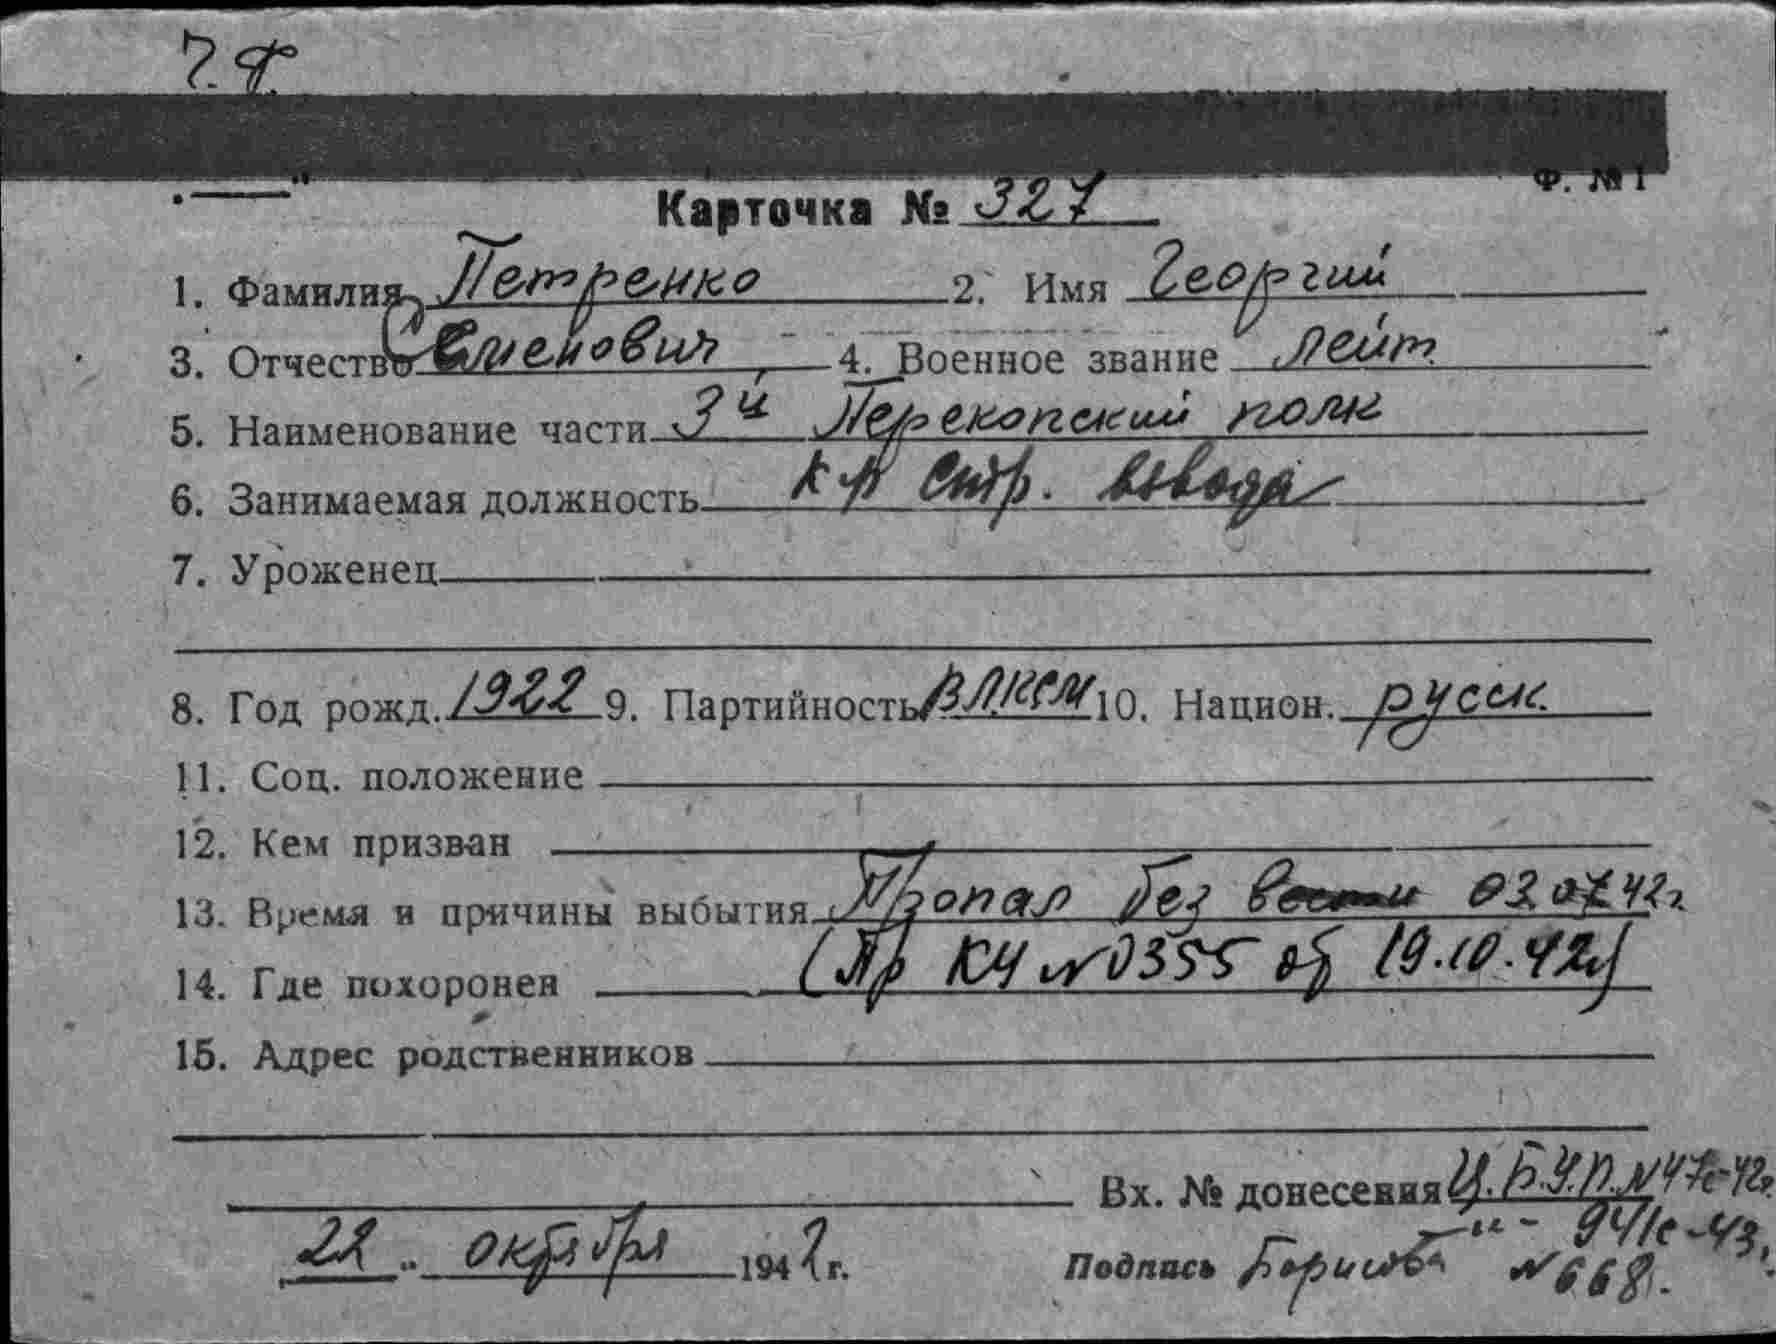 Ч.Ф.
Ф. № 1
Карточка № 327
1. Фамилия Петренко 2. Имя Георгий
3. Отчество Семенович 4. Военное звание лейт
5. Наименование части 3й Перекопский полк
6. Занимаемая должность к-р стр. взвода
7. Уроженец
8. Год рожд. 1922 9. Партийность ВЛКСМ 10. Национ. русск.
11. Соц. положение
12. Кем призван
13. Время и причины выбытия Пропал без вести 03.07.42г
14. Где похоронен (Пр КЧ №0355 об 19.10.42г)
15. Адрес родственников
Вх. № донесения Ц.Б.У.П. №47с-42г
-"- 941с-43,
22 октября 1942 г. Подпись №668.